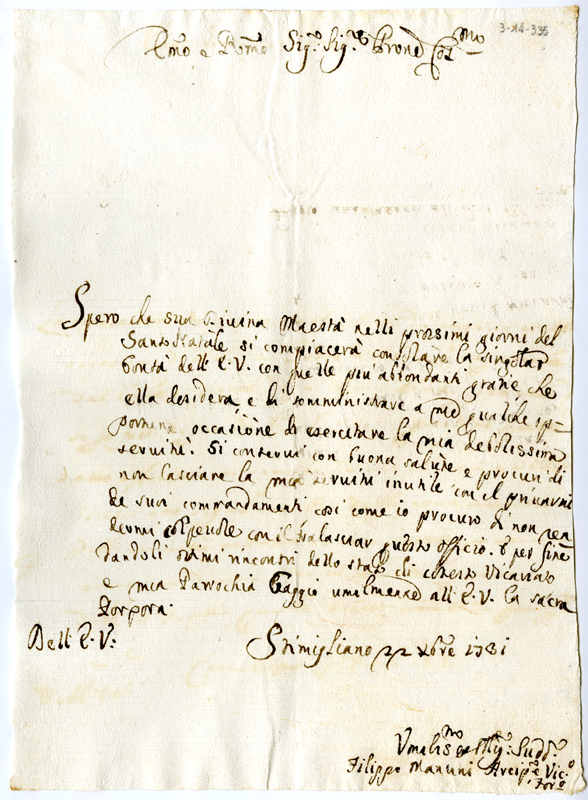 3-24-335
Emo e Rmo Sig.r Sig.r Prone Col.mo
Spero che sua Diuina Maestà nelli prossimi giorni del
Santo Natale si compiacerà consolare la singolar
bontà dell' E.V. con quelle più abbondanti grazie che
ella desidera, e di somministrare a me qualche op=
portuna occasione di esercitare la mia debolissima
seruitù. Si conserui con buona salute e procuri di
non lasciare la mia seruitù inutile con il priuarmi
de suoi commandamenti così come io procuro di non ren
dermi colpeuole con il tralasciar questo officio. E per fine
dandoli ottimi rincontri dello stato di cotesto Vicariato
e mia Parrochia baggio umilmente all' E.V. la sacra
Porpora.
Dell' E.V.
Stimigliano 22 Xbre 1731
Vmiliss.mo Sudd.o
Filippo Mannni Arcip.e Vic.o
For.o